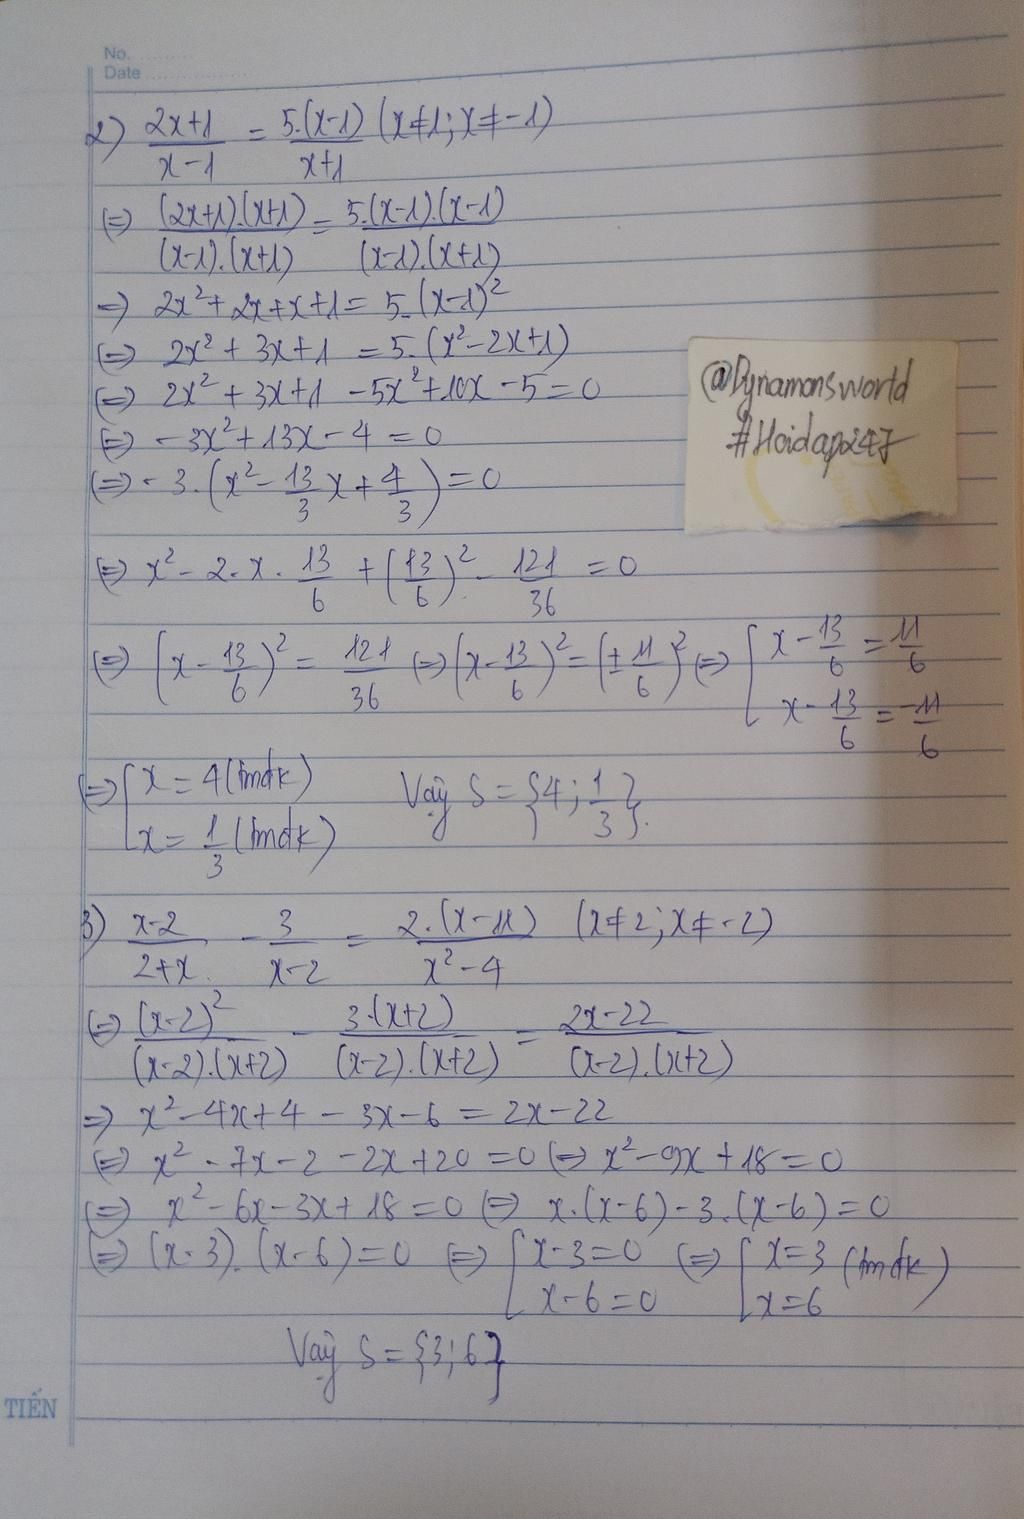 No. ..........
Date ....................
2) (2x+1)/(x-1) = 5.(x-1)/(x+1) (x≠1; x≠-1)
(=) (2x+1).(x+1)/(x-1).(x+1) = 5.(x-1).(x-1)/(x-1).(x+1)
=) 2x²+2x+x+1 = 5.(x-1)²
(=) 2x²+3x+1 = 5.(x²-2x+1)
(=) 2x²+3x+1 -5x²+10x -5=0
(=) -3x²+13x-4=0
(=) -3.(x²-13/3x+4/3)=0
@Dynamonsworld
#Hoidap247
(=) x²-2.x.13/6+(13/6)²-121/36=0
(=) (x-13/6)²=121/36 (=) (x-13/6)²=(±11/6)² (=) [x-13/6=11/6
x-13/6=-11/6
(=) [x=4 (tmđk) Vậy S={4;1/3}.
x=1/3 (tmđk)
3) (x-2)/(2+x) - 3/(x-2) = 2.(x-11)/(x²-4) (x≠2; x≠-2)
(=) (x-2)²/(x-2).(x+2) - 3.(x+2)/(x-2).(x+2) = (2x-22)/(x-2).(x+2)
=) x²-4x+4-3x-6=2x-22
(=) x²-7x-2-2x+20=0 (=) x²-9x+18=0
(=) x²-6x-3x+18=0 (=) x.(x-6)-3.(x-6)=0
(=) (x-3).(x-6)=0 (=) [x-3=0 (=) [x=3 (tmđk)
x-6=0 x=6
Vậy S={3;6}
TIẾN